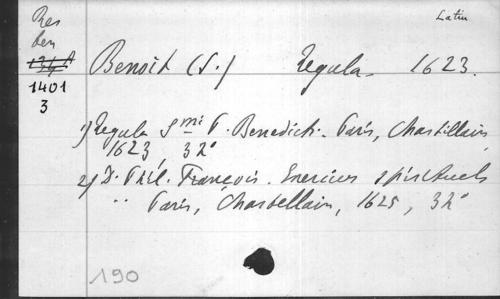 Res
ben
1401
3
Latin
Benoit (S.) Regula. 1623.
1) Regula Smi P. Benedicti. Paris, Chastellain,
1623 32°
2) D. Phil. François. Exercices spirituels
" Paris, Chastellain, 1625, 32°
190